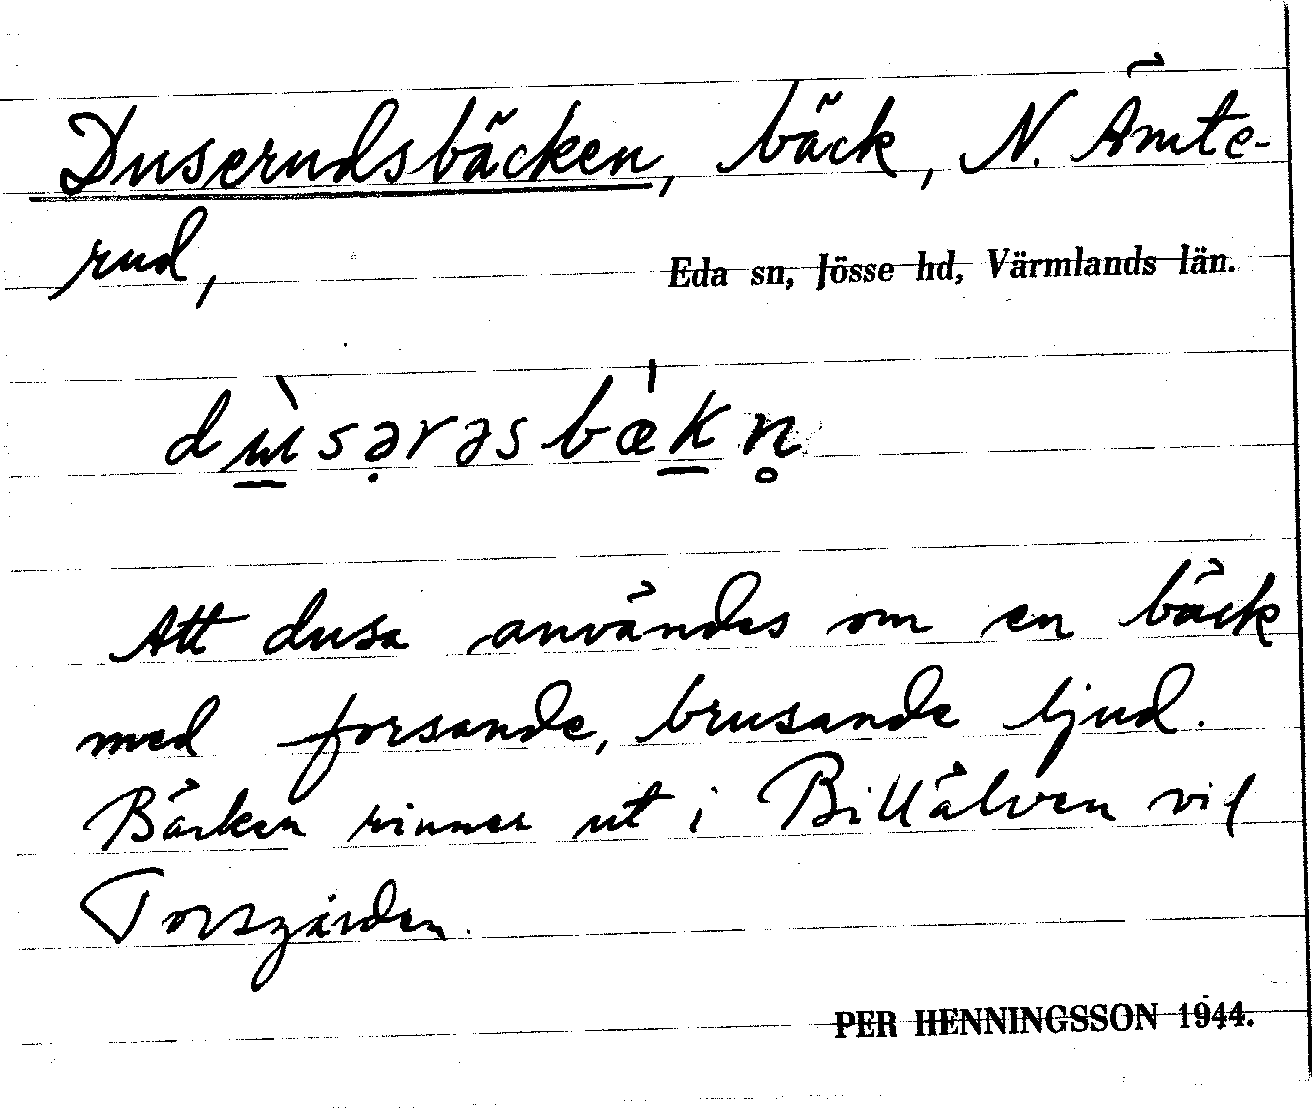 Duserudsbäcken, bäck, N. Ämte-
rud,
Eda sn, Jösse hd, Värmlands län.
dùsərəsbækn̥
Att dusa användes om en bäck
med forsande, brusande ljud.
Bäcken rinner ut i Billälven vid
Torsgården.
PER HENNINGSSON 1944.